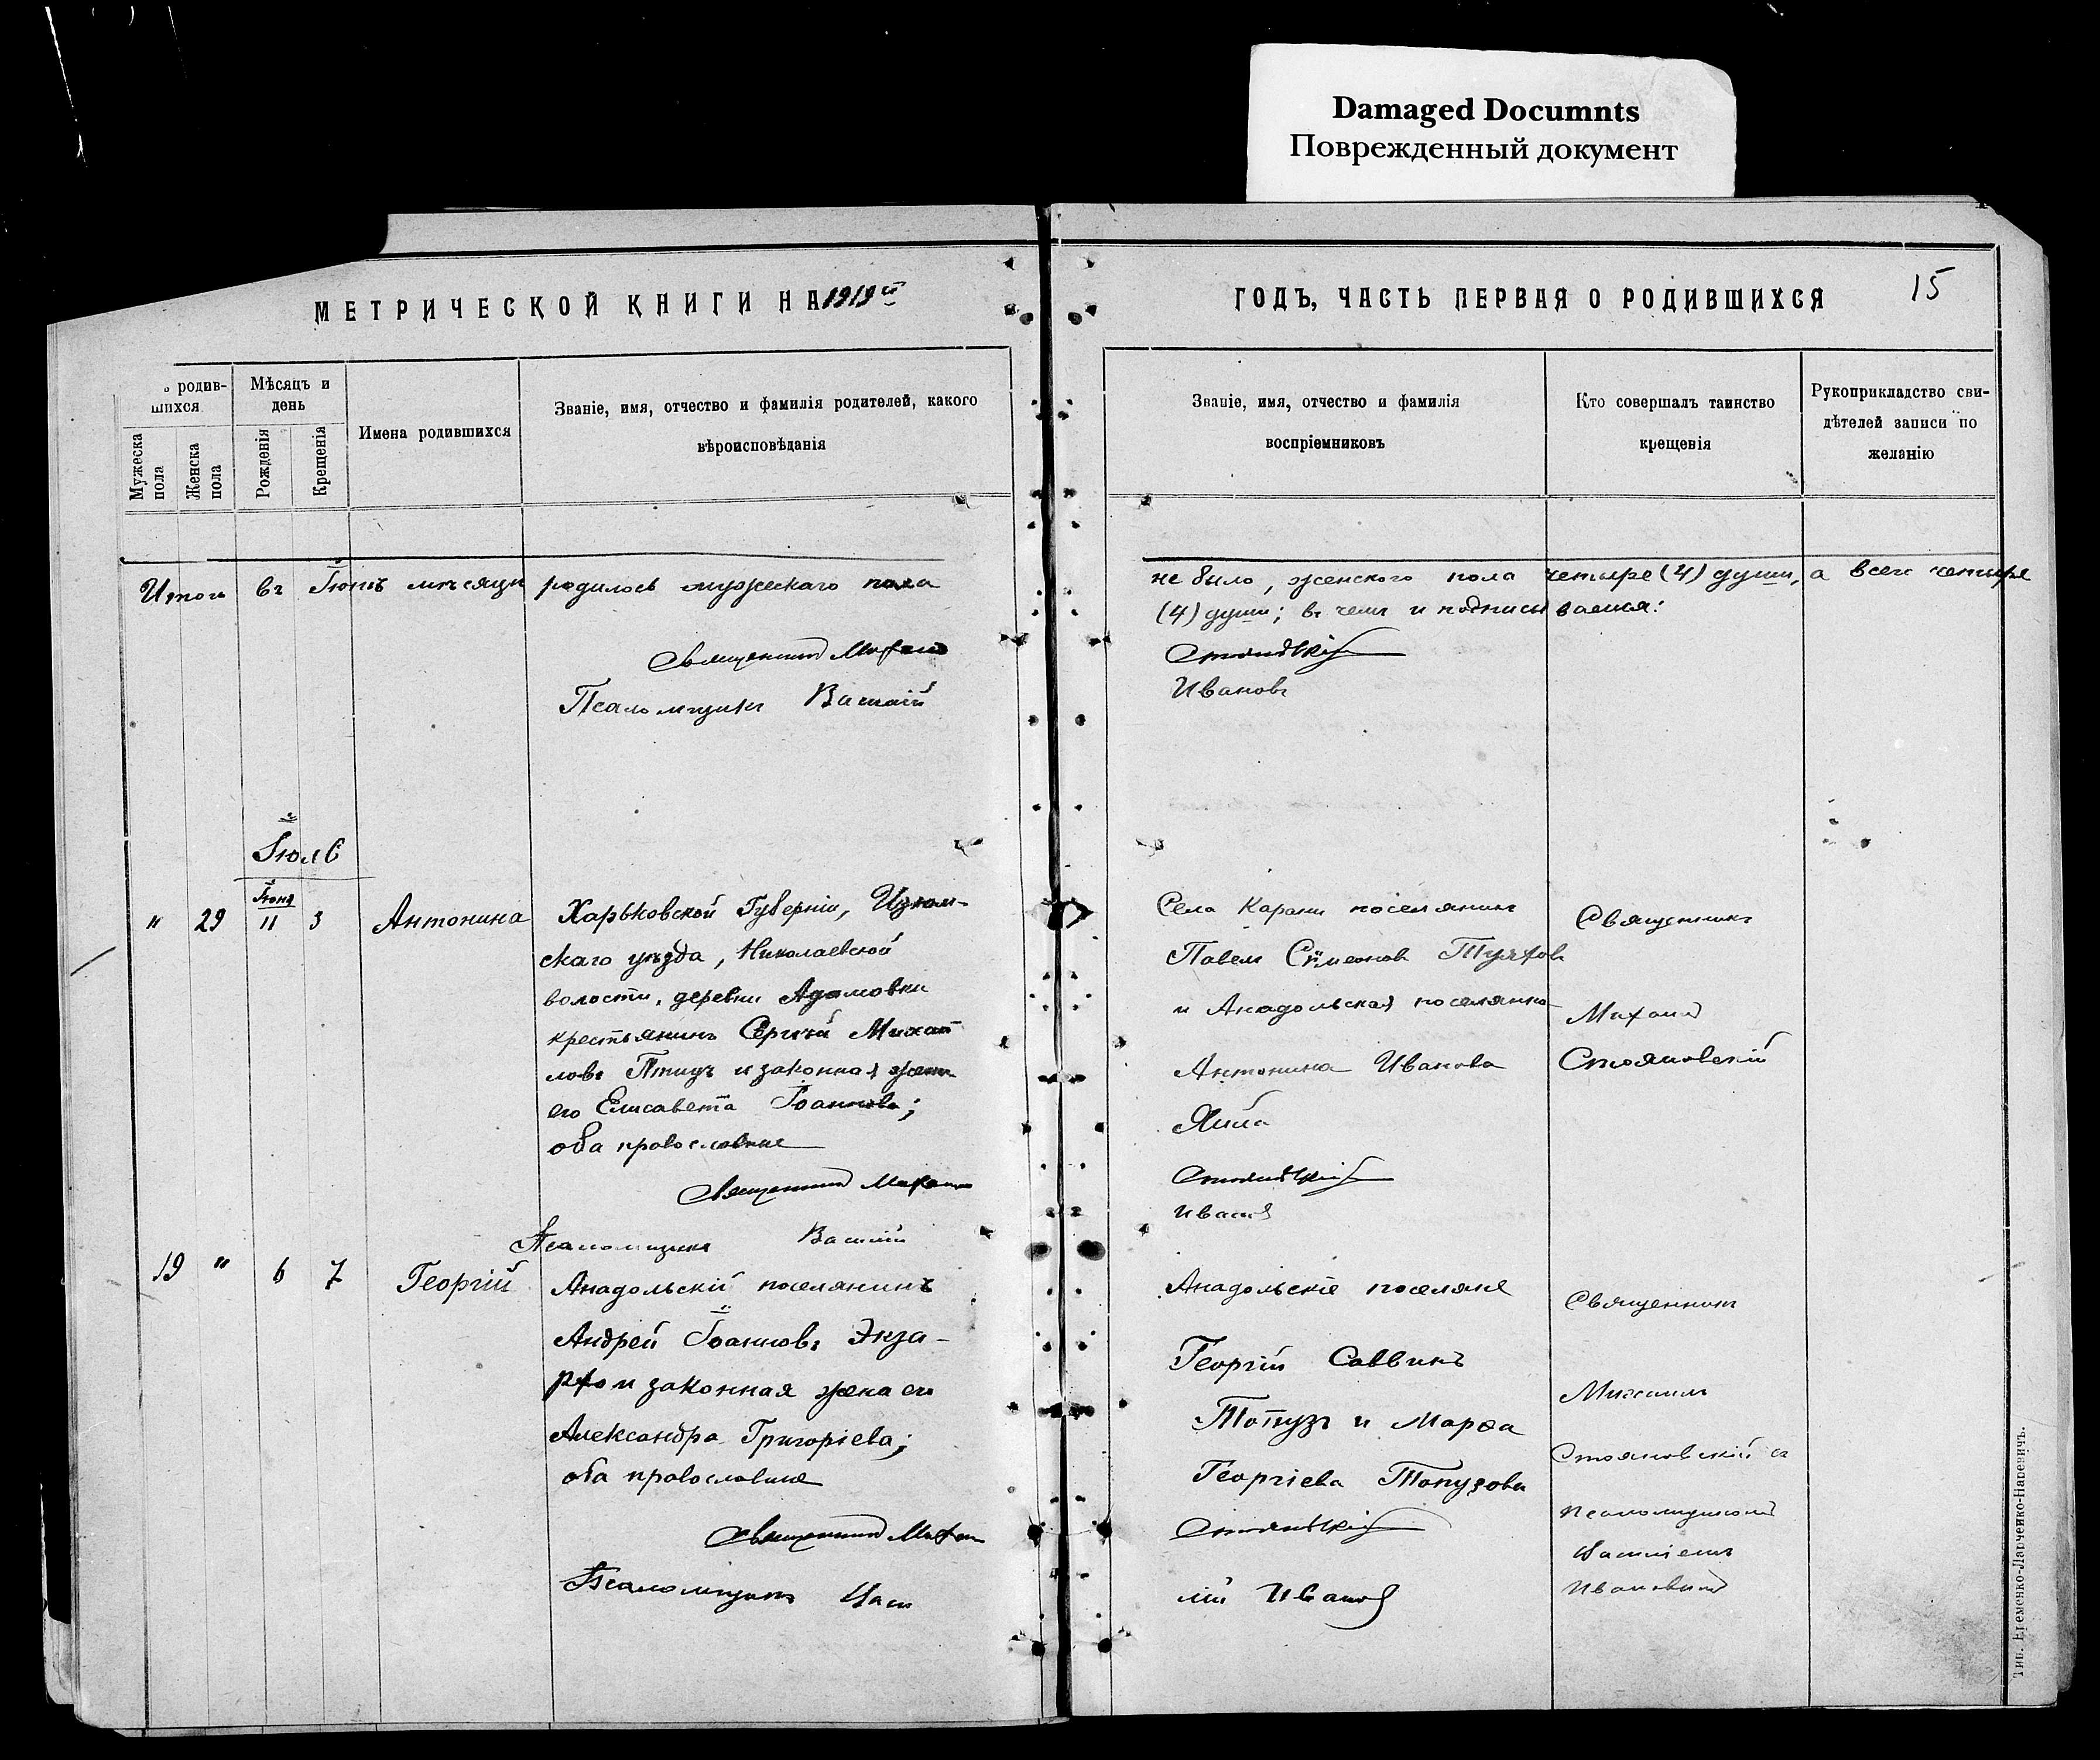 Damaged Documnts
Поврежденный документ
МЕТРИЧЕСКОЙ КНИГИ НА 1919й
ГОДЪ, ЧАСТЬ ПЕРВАЯ О РОДИВШИХСЯ
15
родив-
шихся
Мужеска пола
Женска пола
Мѣсяцъ и
день
Рожденія
Крещенія
Имена родившихся
Званіе, имя, отчество и фамилія родителей, какого
вѣроисповѣданія
Званіе, имя, отчество и фамилія
воспріемниковъ
Кто совершалъ таинство
крещенія
Рукоприкладство сви-
дѣтелей записи по
желанію
Итого въ Іюнѣ мѣсяцѣ родилось мужескаго пола
не было, женского пола четыре (4) души, а всего четыре
(4) души; въ чемъ и подписываемся:
Священникъ Михаилъ
Стояновскій
Псаломщикъ Василій
Ивановъ
Іюль
" 29
Іюня
11 3
Антонина
Харьковской Губерніи, Изюм-
скаго уѣзда, Николаевской
волости, деревни Адамовки
крестьянинъ Сергѣй Михаи
ловъ Птицъ и законная жена
его Елисавета Іоаннова;
оба православные
Села Карани поселянинъ
Павелъ Сѵмеоновъ
и Анадольская поселянка
Антонина Иванова
Священникъ
Михаилъ
Стояновскій
Священникъ Михаилъ
Стояновскій
Псаломщикъ Василій
Ивановъ
19 " 6 7
Георгій
Анадольскій поселянинъ
Андрей Іоанновъ Экза-
рхо и законная жена его
Александра Григоріева;
оба православные
Анадольскіе поселяне
Георгій Саввинъ
Топузъ и Марѳа
Георгіева Топузова
Священникъ
Михаилъ
Стояновскій съ
псаломщикомъ
Василіемъ
Ивановымъ
Священникъ Михаилъ
Стояновскій
Псаломщикъ Васи
лій Ивановъ
Тип. Еременко-Ларченко-Наревичъ.